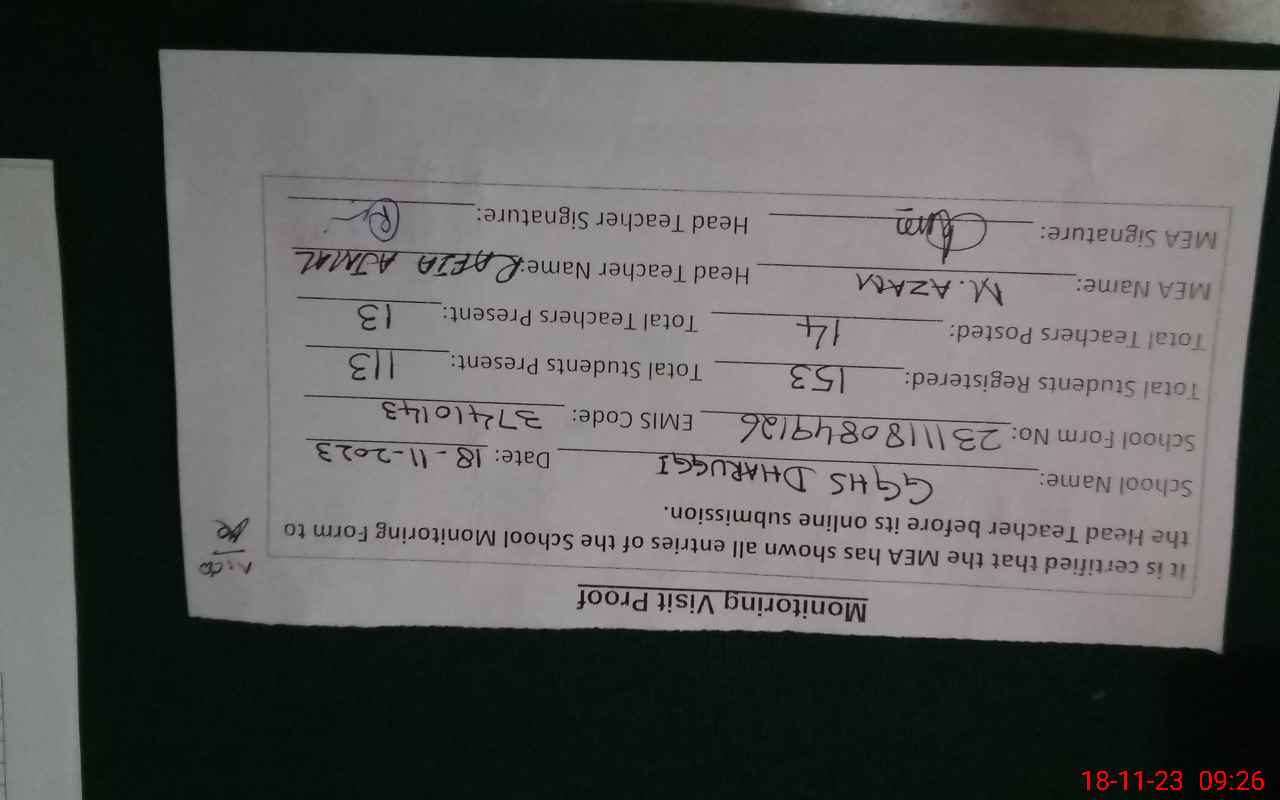 Monitoring Visit Proof
It is certified that the MEA has shown all entries of the School Monitoring Form to
the Head Teacher before its online submission.
School Name: GGHS DHARUGGI Date: 18-11-2023
School Form No: 2311180849126 EMIS Code: 37410143
Total Students Registered: 153 Total Students Present: 113
Total Teachers Posted: 14 Total Teachers Present: 13
MEA Name: M. AZAM Head Teacher Name: RAFIA AJMAL
MEA Signature: Head Teacher Signature:
18-11-23 09:26